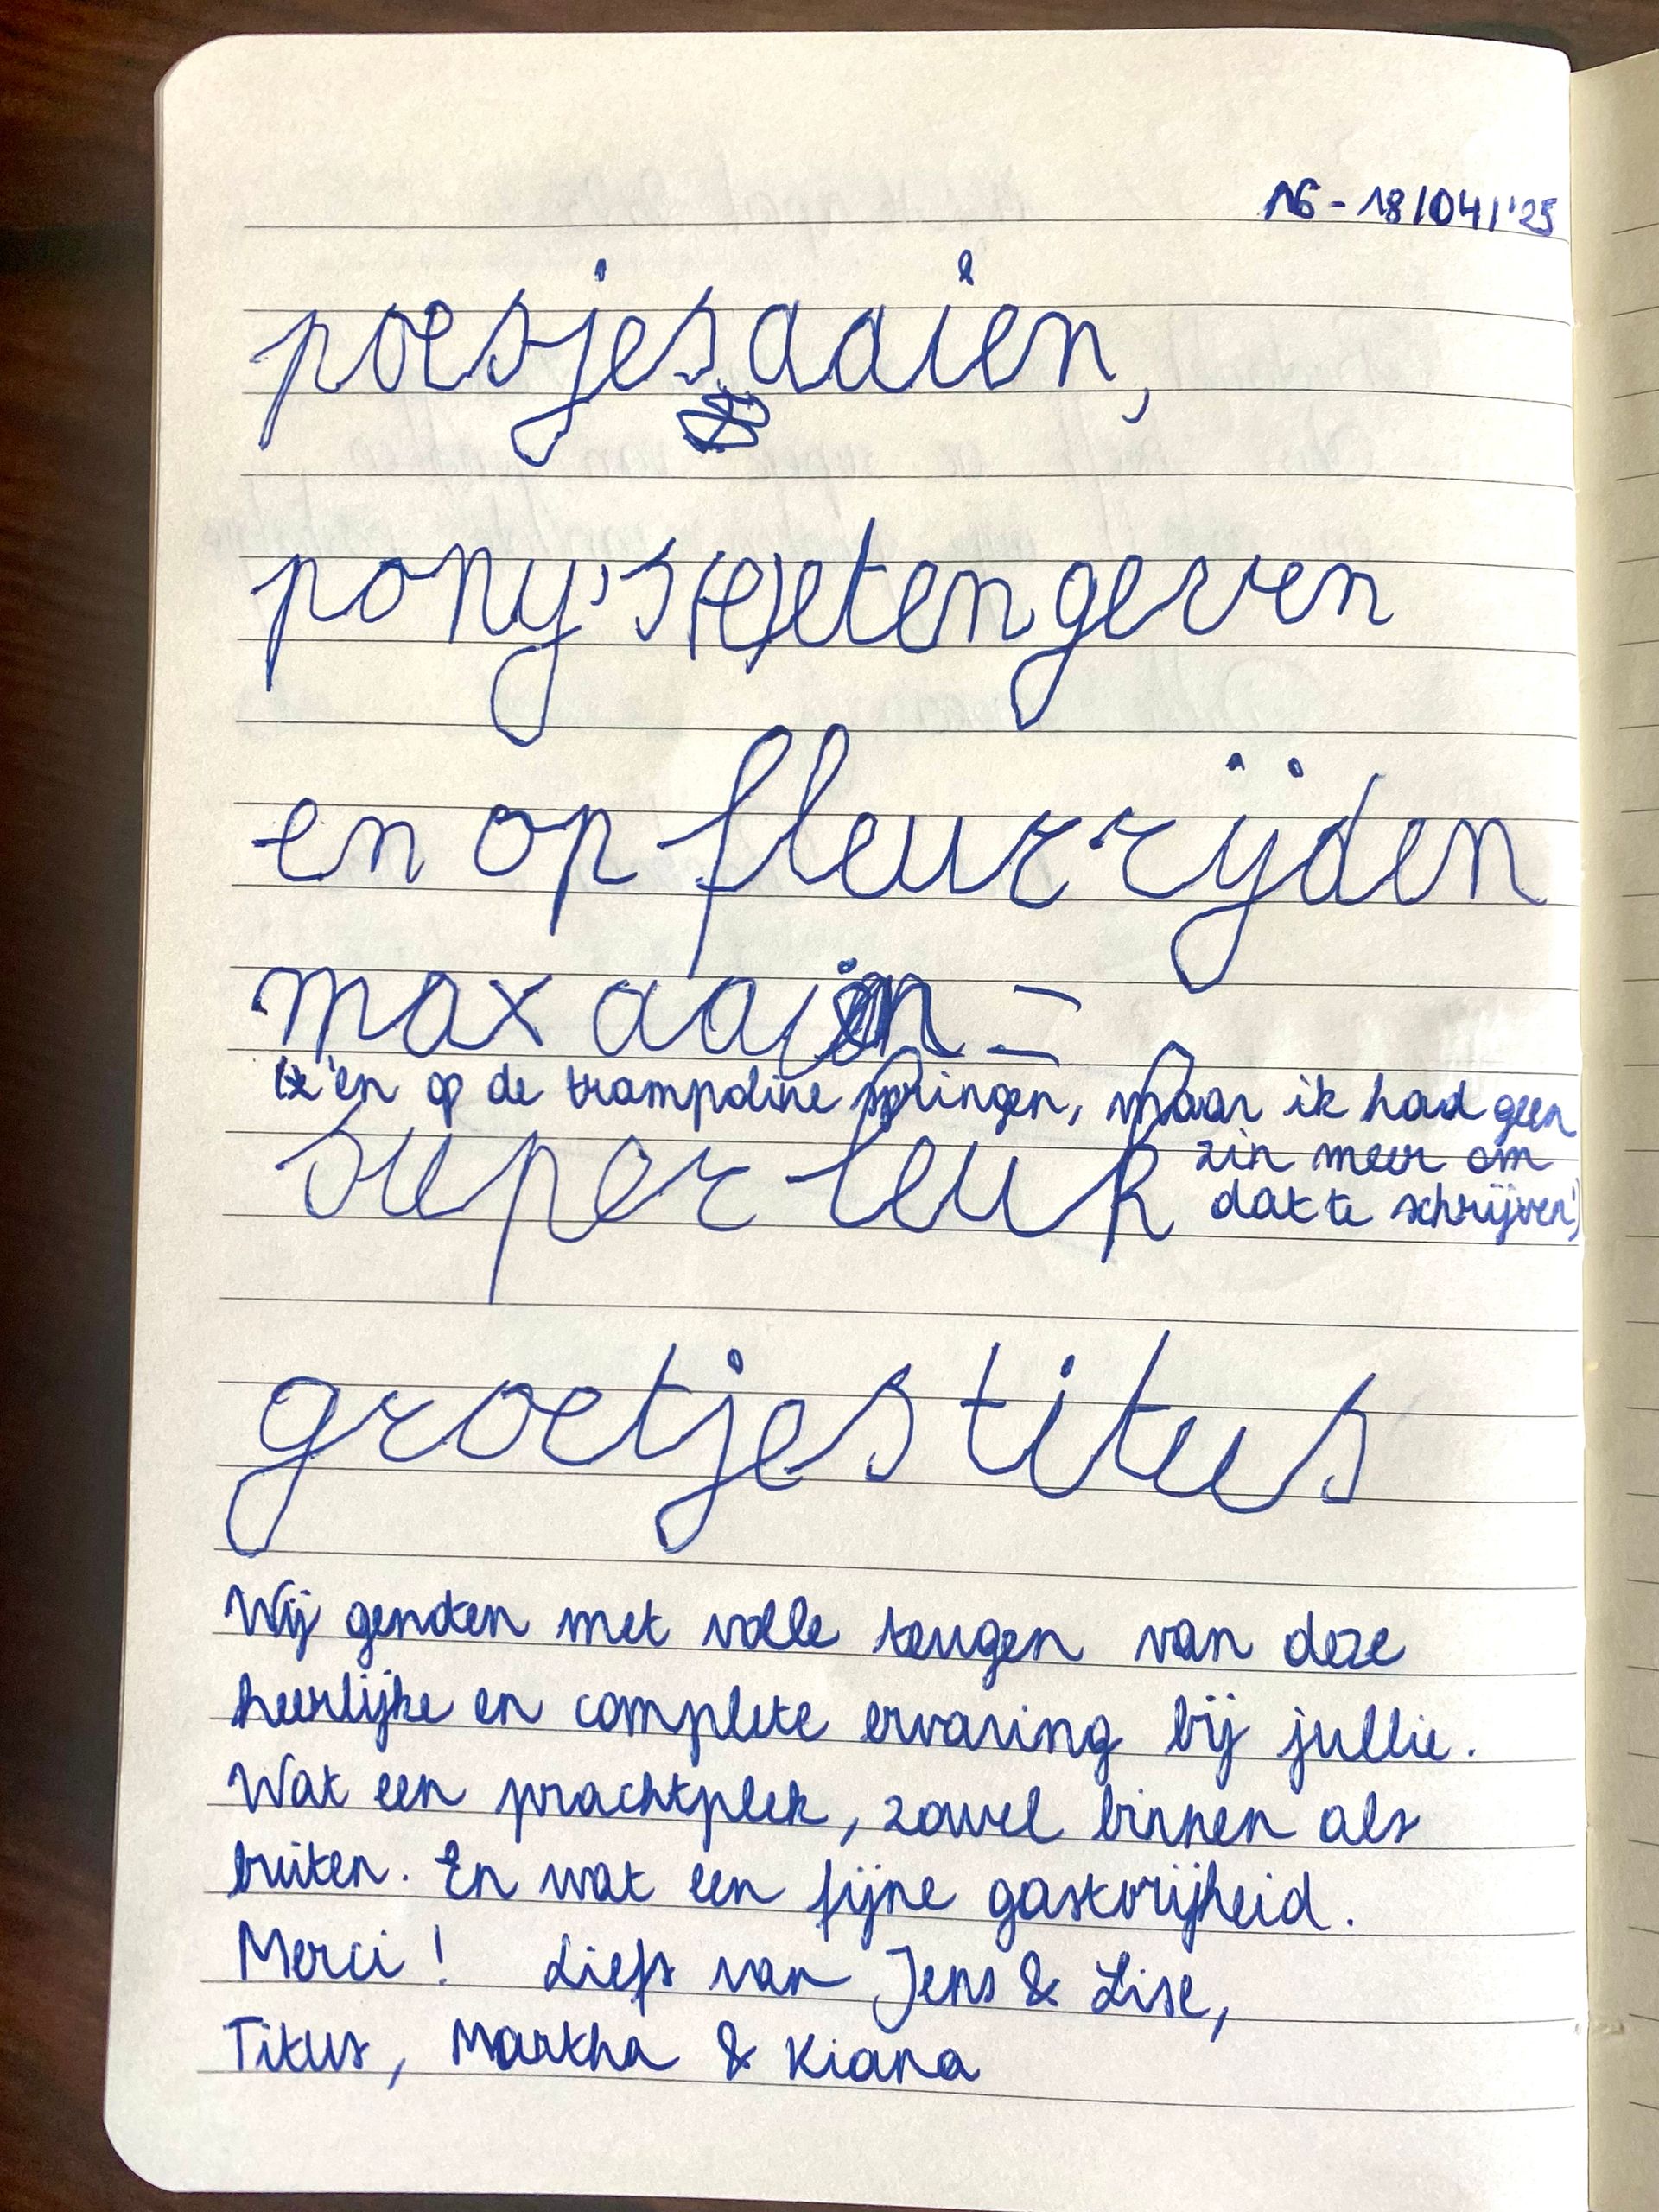 16 - 18/04/'25
poesjes aaien,
pony's (e)eten geven
en op fleur rijden
max aaien =
(& 'en op de trampoline springen, maar ik had geen
zin meer om
dat te schrijven')
super leuk
groetjes titus
Wij genoten met volle teugen van deze
heerlijke en complete ervaring bij jullie.
Wat een prachtplek, zowel binnen als
buiten. En wat een fijne gastvrijheid.
Merci! Liefs van Jens & Lise,
Titus, Martha & Kiana